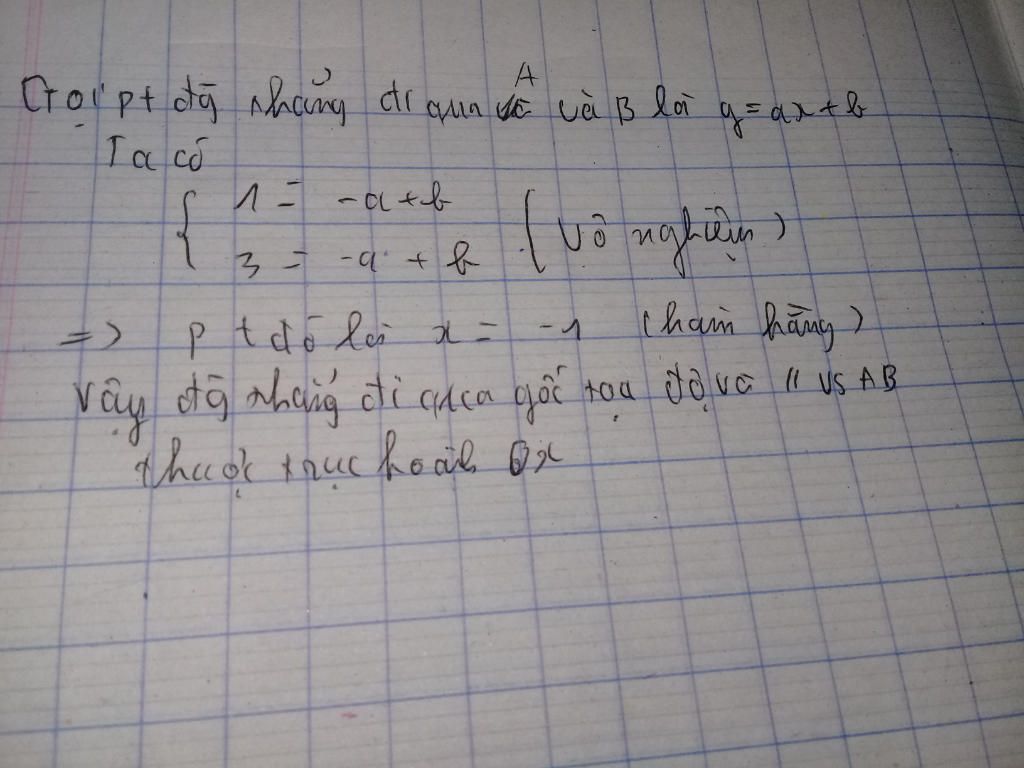 Gọi pt đg thẳng đi qua A và B là y = ax + b
Ta có
{ 1 = -a + b
{ 3 = -a + b ( Vô nghiệm )
=> pt đó là x = -1 ( hàm hằng )
Vậy đg thẳng đi qua gốc toạ độ và // vs AB
thuộc trục hoành Ox